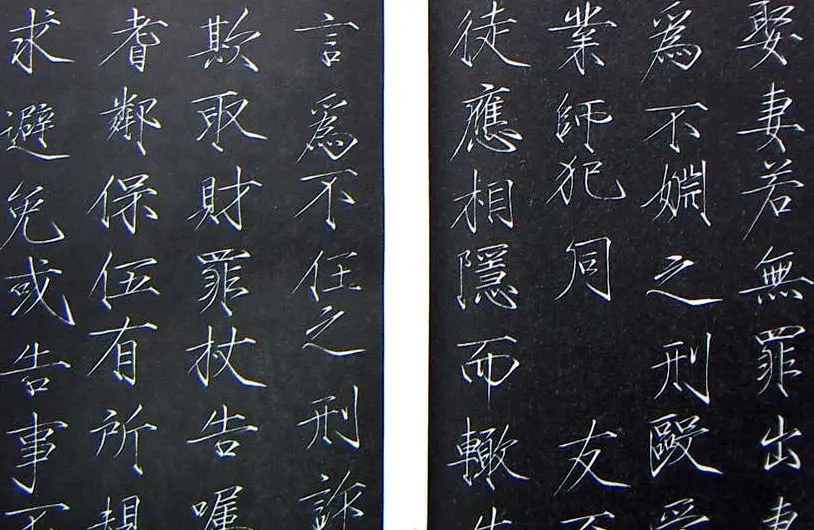 娶妻若無罪出妻
爲不婣之刑毆
業師犯同 友不
徒應相隱而轍告
言爲不任之刑訴
欺取財罪杖告囑
耆鄰保伍有所規
求避免或告事不